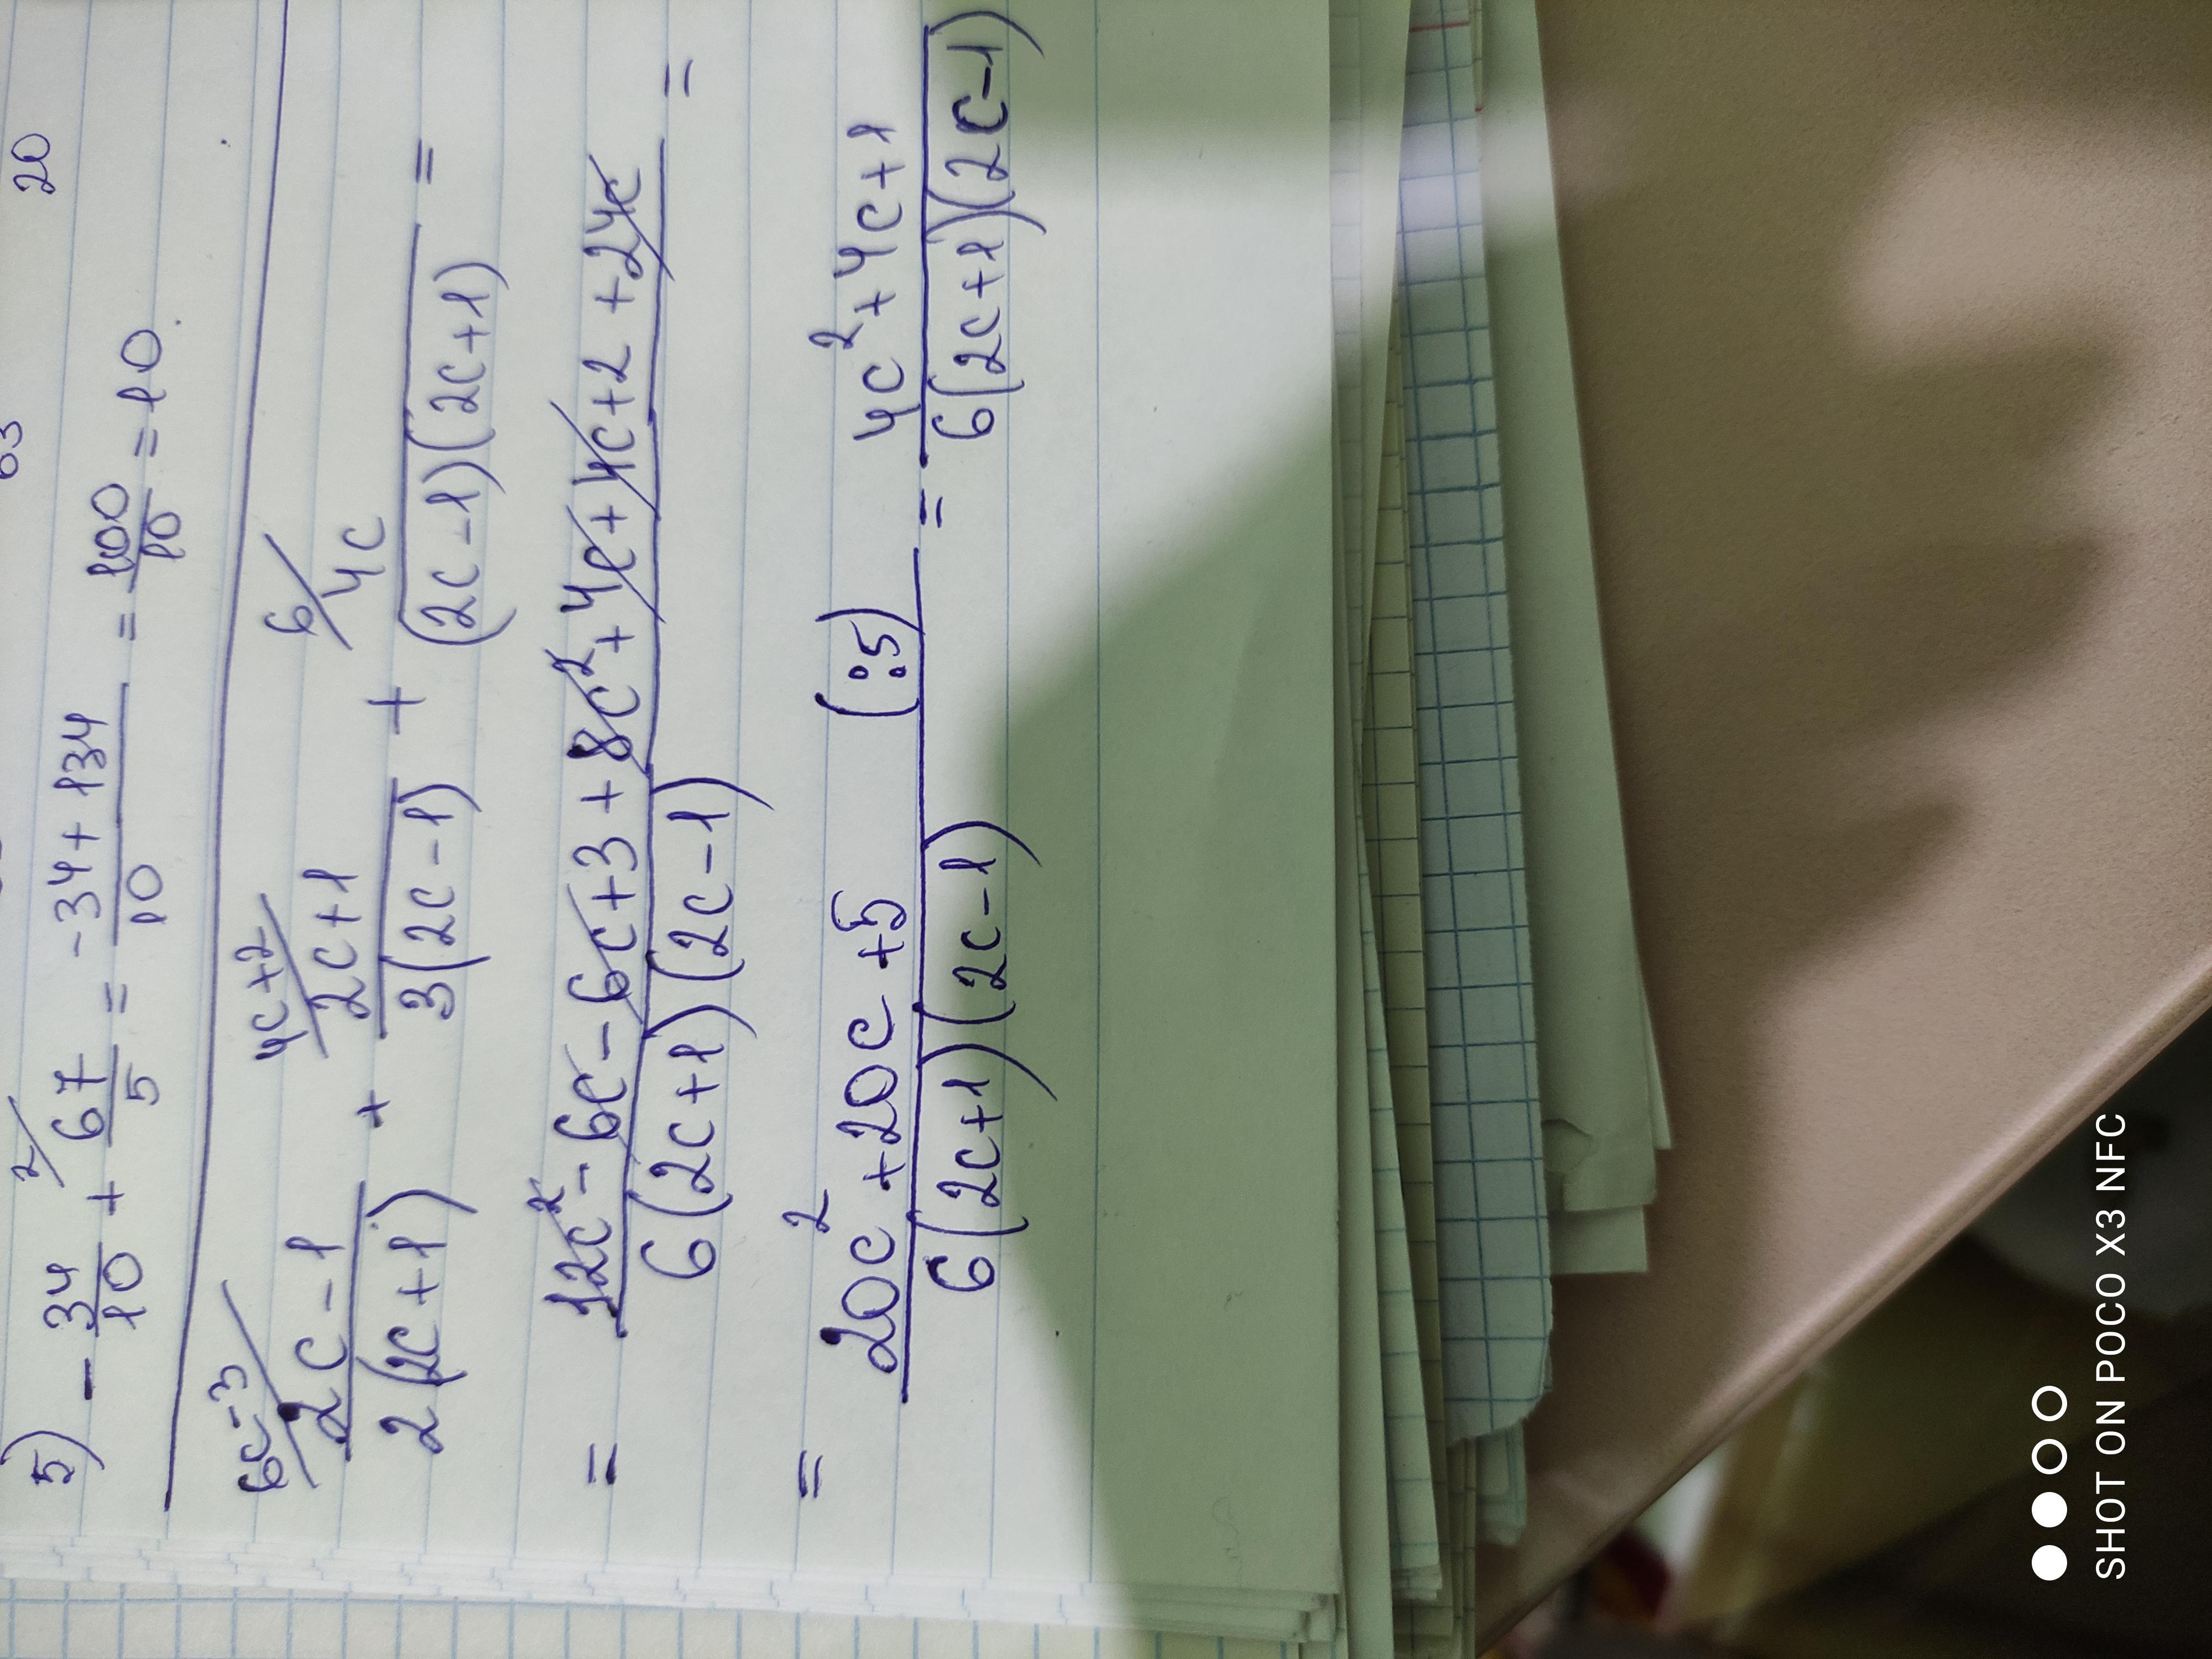 63 20
5) - 34/10 + 2/ 67/5 = (-34+134)/10 = 100/10 = 10.
6c-3/ (2c-1)/(2(2c+1)) + 4c+2/ (2c+1)/(3(2c-1)) + 6/ 4c/((2c-1)(2c+1)) =
= (12c² - 6c - 6c + 3 + 8c² + 4c + 4c + 2 + 24c)/(6(2c+1)(2c-1)) =
= (20c² + 20c + 5 (:5))/(6(2c+1)(2c-1)) = (4c² + 4c + 1)/(6(2c+1)(2c-1))
SHOT ON POCO X3 NFC